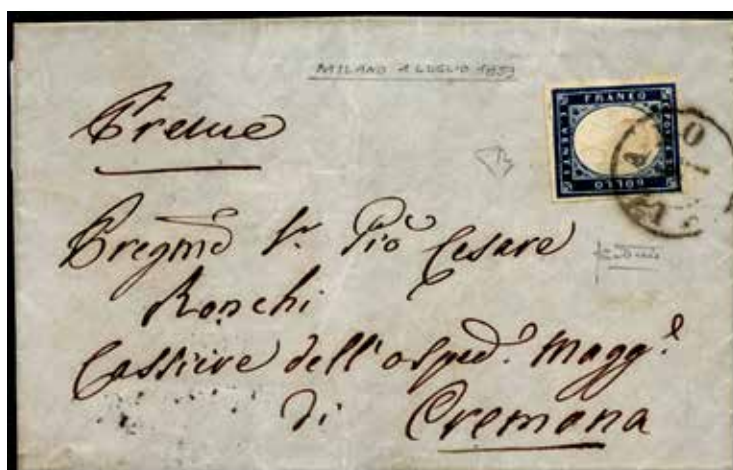 MILANO 1 LUGLIO 1859
FRANCO
BOLLO
Pregmo Sr. Pio Cesare
Ronchi
Cassiere dell'osped.e Magg.e
di Cremona